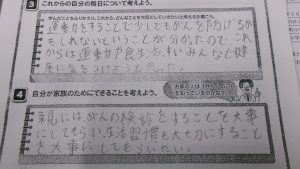 3 これからの自分の毎日について考えよう。
学んだことをふりかえり、これから、どんなことを大切にしていきたいと考えるか書こう。
運動をすることで少しでもがんを防げるか
もしれないということが分かったので、これ
からは運動力や食生活、すいみんなど健
康に気をつけようと思った。
4 自分が家族のためにできることを考えよう。
お家の人は「がん」のこ
とを知っているのかな？
親には、がんの検診をすることを大事
にしてもらい生活習慣も大切にすること
を大事にしてもらいたい。